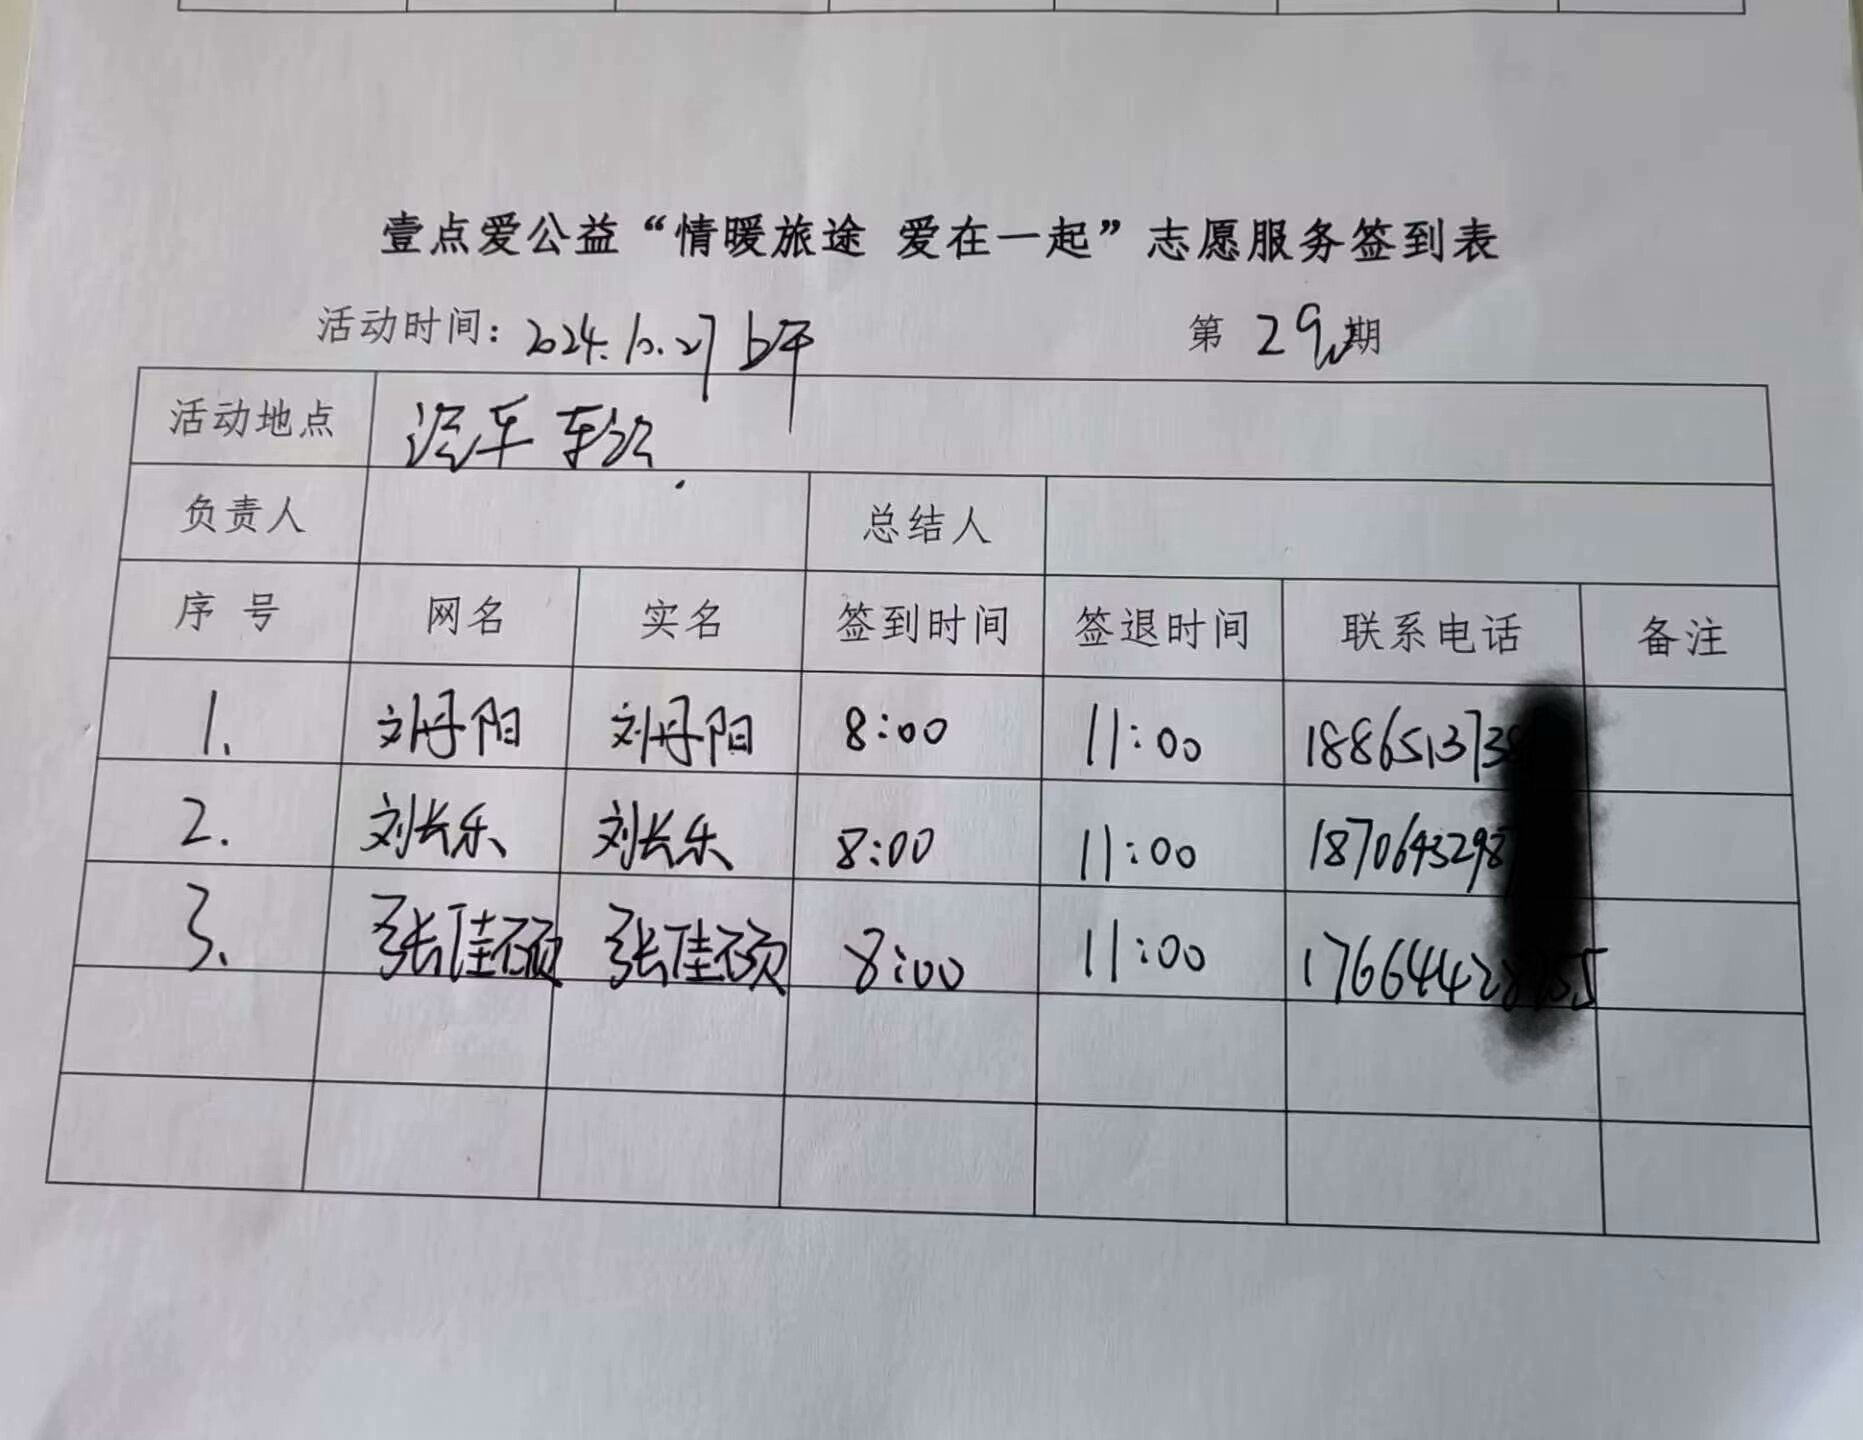 壹点爱公益“情暖旅途 爱在一起”志愿服务签到表
活动时间：2024.10.27 上午 第 29 期
活动地点 汽车
负责人 总结人
序号 网名 实名 签到时间 签退时间 联系电话 备注
1. 刘丹阳 刘丹阳 8:00 11:00
2. 刘长乐 刘长乐 8:00 11:00
3. 张佳硕 张佳硕 8:00 11:00